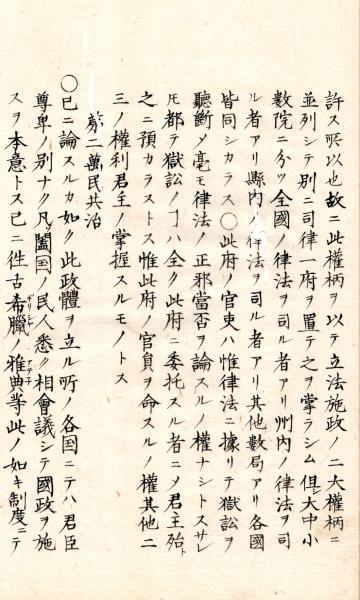 許ス所以也故ニ此權柄ヲ以テ立法施政ノ二大權柄ニ
並列シテ別ニ司律一府ヲ置テ之ヲ掌ラシム但シ大中小
数院ニ分ツ全國ノ律法ヲ司ル者アリ州内ノ律法ヲ司
ル者アリ縣内ノ律法ヲ司ル者アリ其他數局アリ各國
皆同シカラス〇此府ノ官吏ハ惟律法ニ據リテ獄訟ヲ
聽斷シ毫モ律法ノ正邪當否ヲ論スルノ權ナシトスサレ
𪜈都テ獄訟ノヿハ全ク此府ニ委托スル者ニメ君主殆ト
之ニ預カラストス惟此府ノ官員ヲ命スルノ權其他二
三ノ權利君主ノ掌握スルモノトス
第二萬民共治
〇已ニ論スルカ如ク此政體ヲ立ル所ノ各国ニテハ君臣
尊卑ノ別ナク凡ソ闔国ノ民人悉ク相會議シテ國政ヲ施
スヲ本意トス已ニ徃古希臘ギリシヤノ雅典アテネ等此ノ如キ制度ニテ